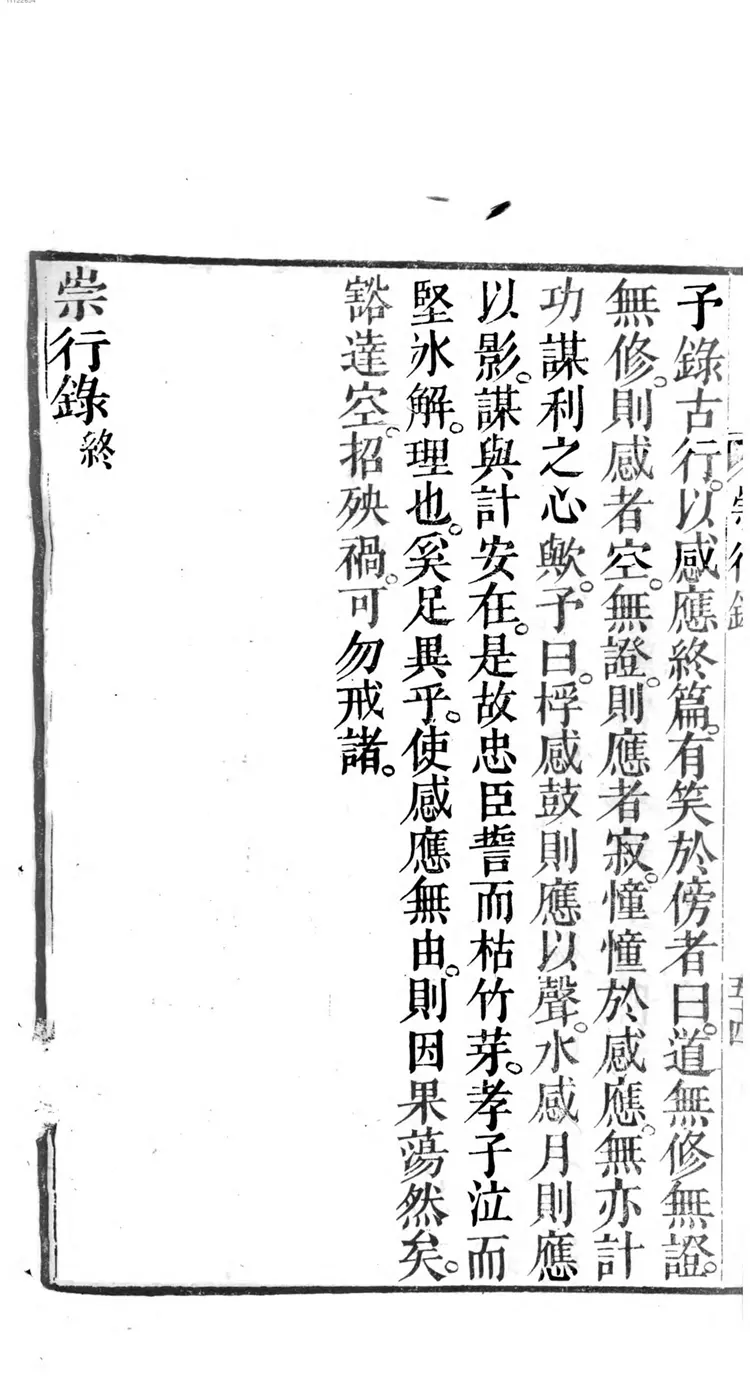 予錄古行。以感應終篇。有笑於傍者曰。道無修無證。
無修。則感者空。無證。則應者寂。憧憧於感應。無亦計
功謀利之心歟。予曰。桴感鼓則應以聲。水感月則應
以影。謀與計安在。是故忠臣誓而枯竹芽。孝子泣而
堅冰解。理也。奚足異乎。使感應無由。則因果蕩然矣。
豁達空。招殃禍。可勿戒諸。
崇行錄終
崇行錄
五十四